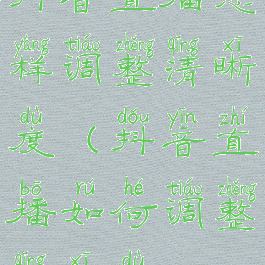 yàng tiáo zhěng qīng xī
样调整清晰
dù dǒu yīn zhí
度（抖音直
bō rú hé tiáo zhěng
播如何调整
qīng xī dù